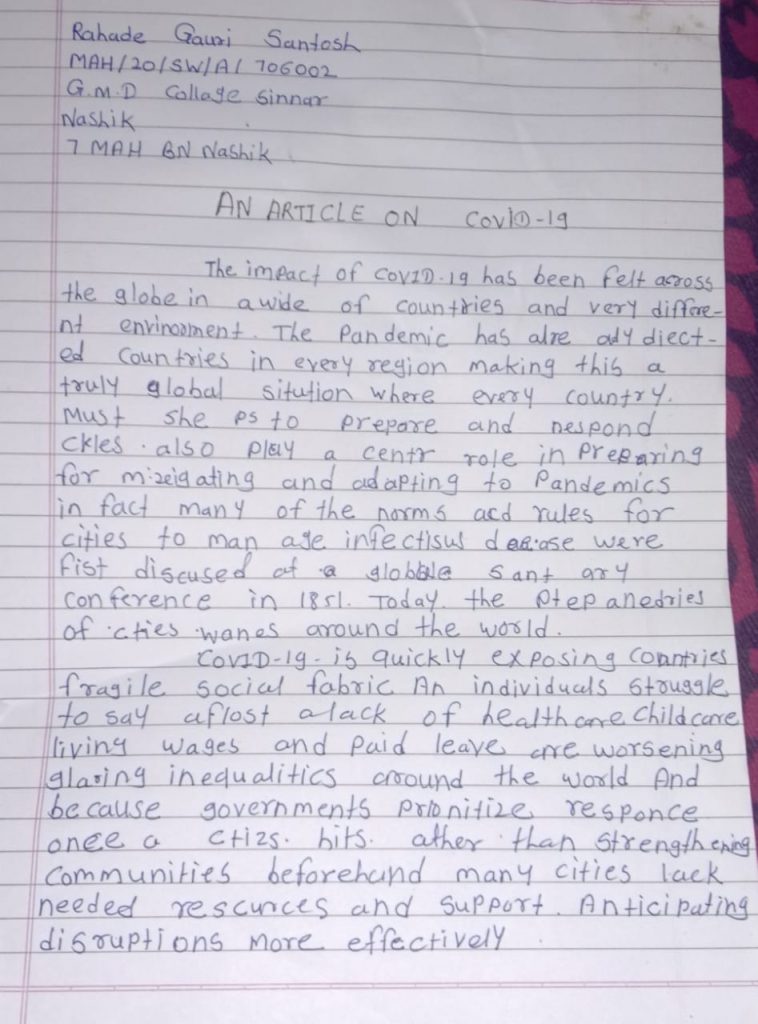 Rahade Gauri Santosh
MAH/20/SW/A/706002
G.M.D Collage Sinnar
Nashik
7 MAH BN Nashik
AN ARTICLE ON COVID-19
The impact of COVID-19 has been felt across
the globe in a wide of countries and very differe-
nt envinooment. The Pandemic has alre ady diect-
ed countries in every region making this a
truly global sitution where every country.
Must she ps to prepare and nespond
ckles. also play a centr role in preparing
for mizeigating and adapting to Pandemics
in fact many of the norms acd rules for
cities to man age infectisus dease were
fist discused at a globble sant ary
conference in 1851. Today. the ptep anedries
of cties wanes around the world.
COVID-19- is quickly exposing countries
fragile social fabric An individuals struggle
to say aflost a lack of healthcare childcare
living wages and paid leave are worsening
glaring inequalitics around the world And
be cause governments prionitize responce
onee a ctizs. hits. ather than strengthening
communities beforehand many cities lack
needed rescurces and support. Anticipating
disruptions more effectively